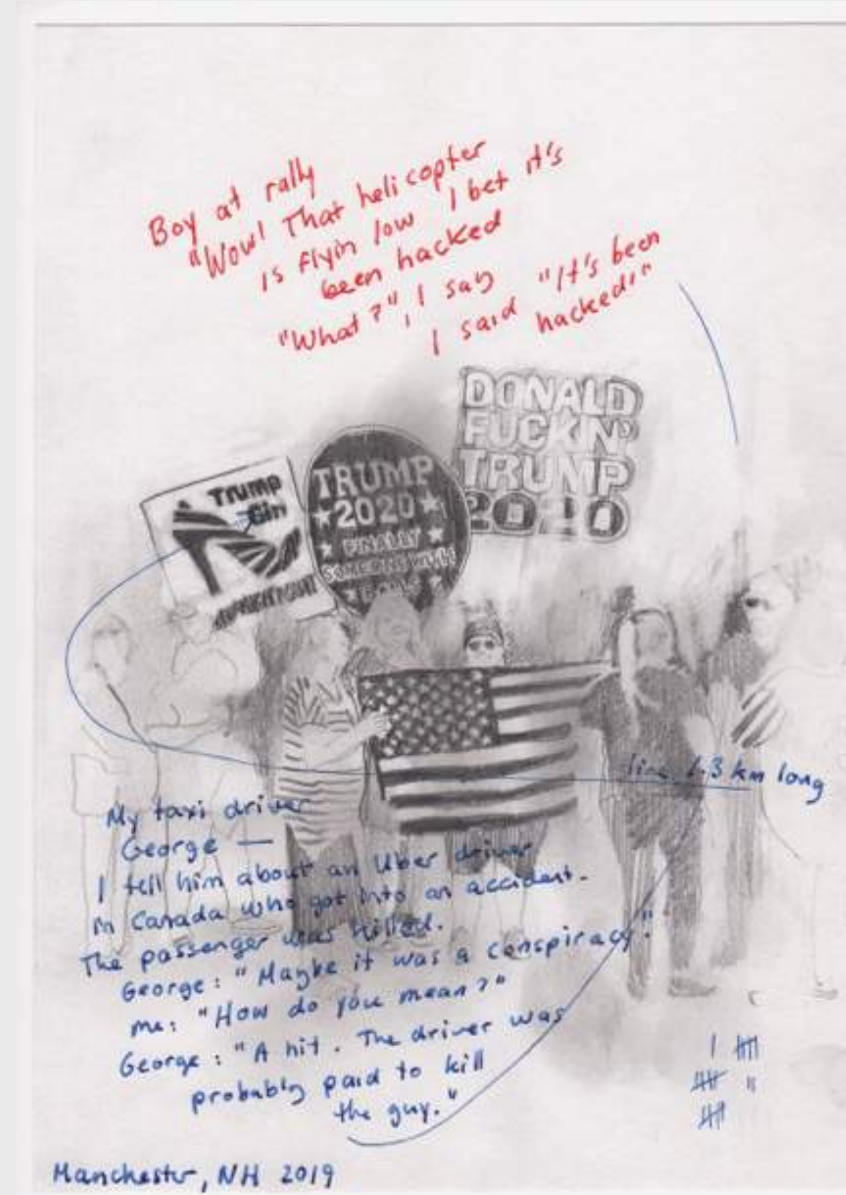 Boy at rally
"Wow! That helicopter
is flyin low I bet it's
been hacked
"What?", I say
I said "It's been
hacked!"
DONALD
FUCKIN'
TRUMP
2020
Trump
Girl
TRUMP
★ 2020 ★
★ FINALLY ★
SOMEONE WITH
line 1.3 km long
My taxi driver
George —
I tell him about an Uber driver
in Canada who got into an accident.
The passenger was killed.
George: "Maybe it was a conspiracy."
me: "How do you mean?"
George: "A hit. The driver was
probably paid to kill
the guy."
Manchester, NH 2019